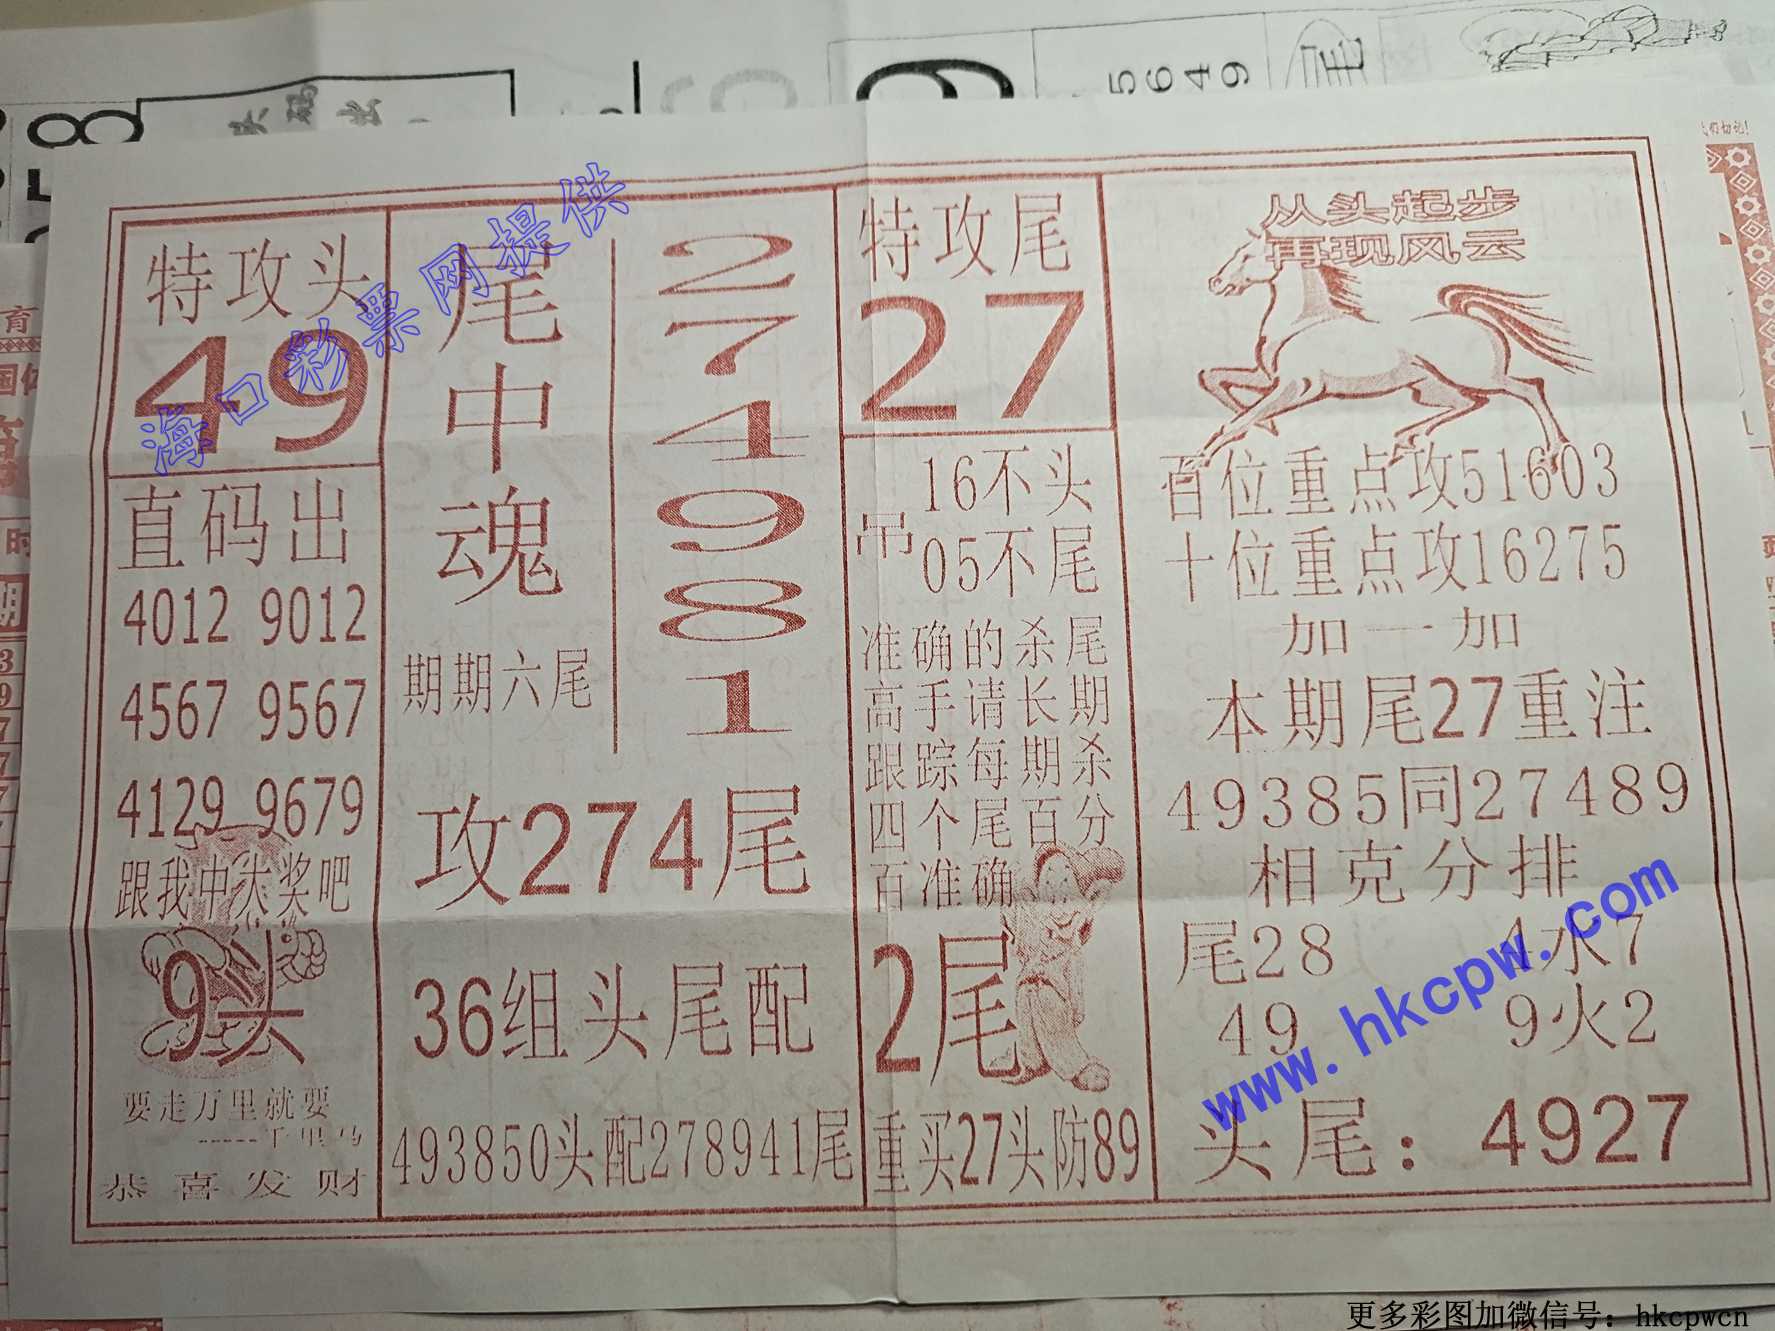 5649
尾
58
特攻头
49
直码出
4012 9012
4567 9567
4129 9679
跟我中大奖吧
9头
要走万里就要
-----千里马
恭喜发财
尾中魂
期期六尾
2
7
4
9
8
1
攻274尾
36组头尾配
493850头配278941尾
特攻尾
27
吊
16不头
05不尾
准确的杀尾
高手请长期
跟踪每期杀
四个尾百分
百准确
2尾
重买27头防89
从头起步
再现风云
百位重点攻51603
十位重点攻16275
加一加
本期尾27重注
49385同27489
相克分排
尾28 4水7
49 9火2
头尾：4927
海口彩票网提供
www.hkcpw.com
更多彩图加微信号：hkcpwcn